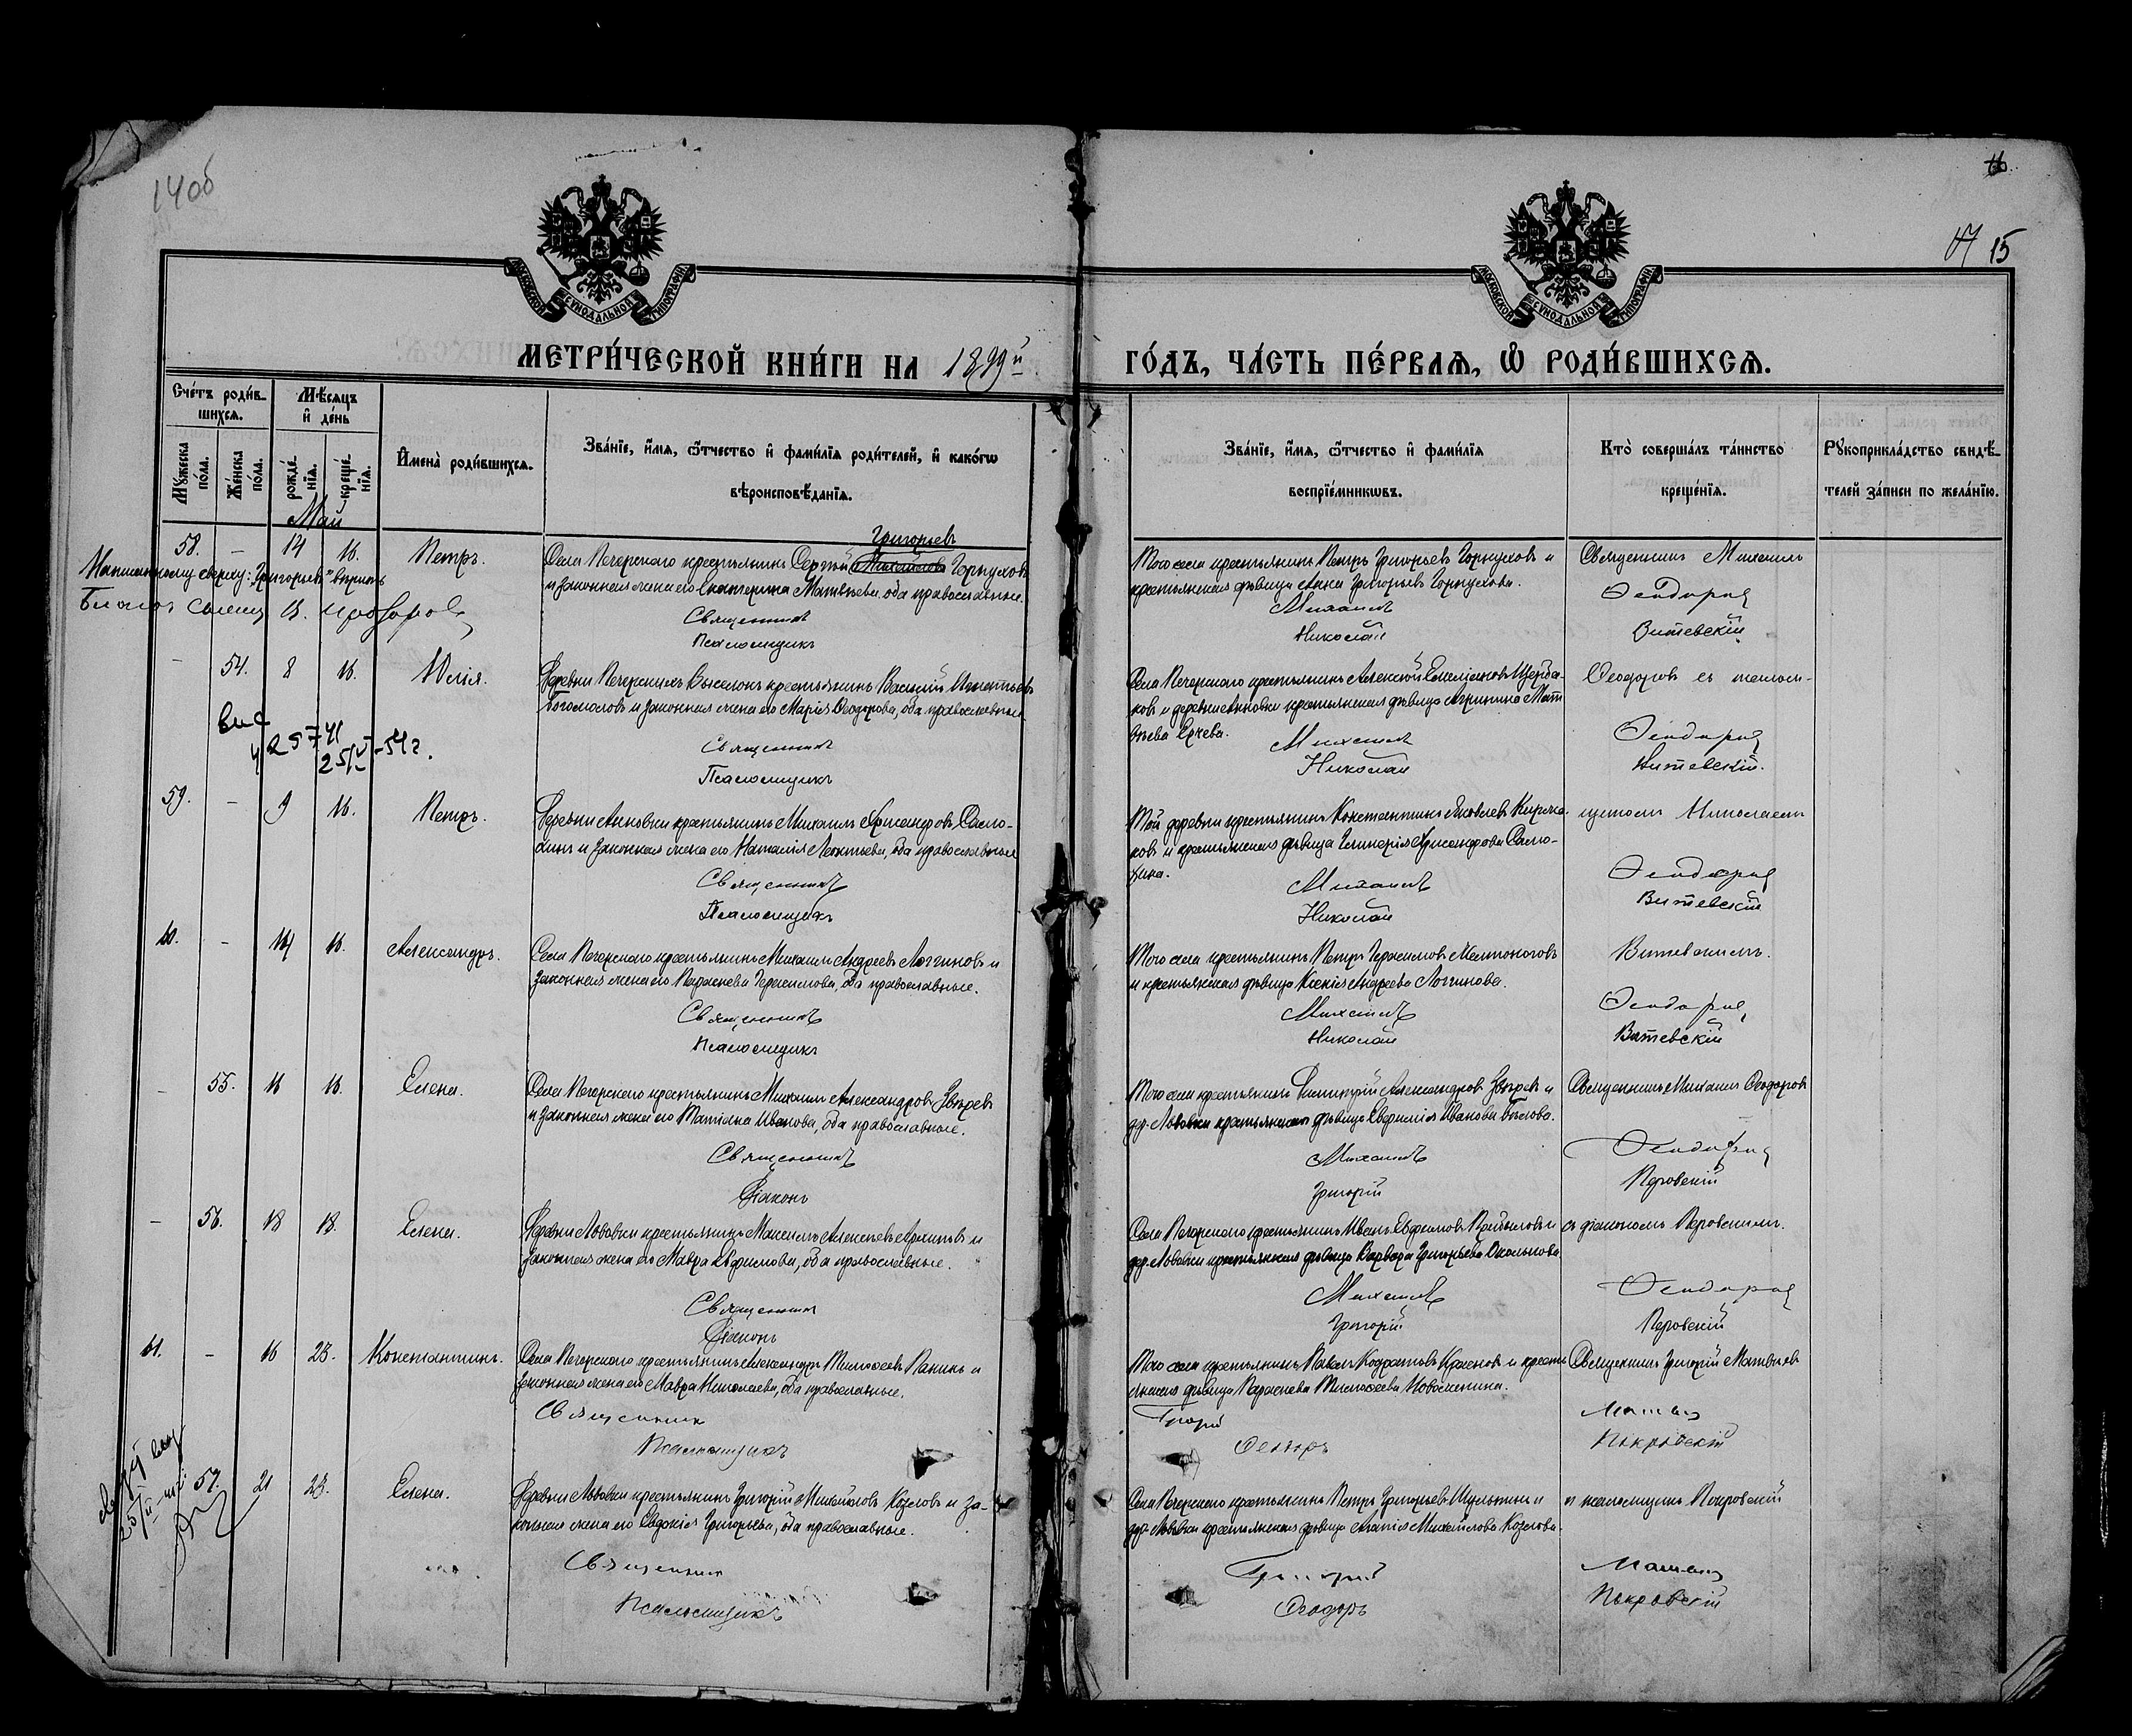 14об
16.
47 15
МОСКОВСКОЙ СѴНОДАЛЬНОЙ ТИПОГРАФІИ
МОСКОВСКОЙ СѴНОДАЛЬНОЙ ТИПОГРАФІИ
МЕТРИ́ЧЕСКОЙ КНИ́ГИ НА 1899й
ГО́ДЪ, ЧА́СТЬ ПЕ́РВАѦ, Ѡ҆ РОДИ́ВШИХСѦ.
Сче́тъ роди́в-
шихсѧ.
Мѣ́сѧцъ
и҆ де́нь
Мꙋ́жеска по́ла.
Же́нска по́ла.
рожде́-нїѧ.
креще́-нїѧ.
И҆мена̀ роди́вшихсѧ.
Зва́нїе, и҆́мѧ, ѻ҆́тчество и҆ фами́лїѧ роди́телей, и҆ како́гѡ
вѣроисповѣ́данїѧ.
Зва́нїе, и҆́мѧ, ѻ҆́тчество и҆ фами́лїѧ
воспрїе́мникѡвъ.
Кто̀ соверша́лъ та́инство
креще́нїѧ.
Рꙋкоприкла́дство свидѣ́-
телей за́писи по жела́нїю.
Май
58. - 14 16. Петръ.
Григорьевъ
Села Печерскаго крестьянинъ Сергѣй Михайловъ Горпуховъ
и законная жена его Екатерина Матвѣева, оба православные.
Священникъ
Псаломщикъ
Того села крестьянинъ Петръ Григорьевъ Горпуховъ и
крестьянская дѣвица Анна Григорьева Горпухова.
Михаилъ
Николай
Священникъ Михаилъ
Ѳеодоровъ
Витевскій
Написанному сверху: „Григорьевъ" вѣрить
- 54. 8 16. Юлія.
Деревни Печерскихъ Выселокъ крестьянинъ Василій Игнатьевъ
Богомоловъ и законная жена его Марія Ѳеодорова, оба православные.
Священникъ
Псаломщикъ
Села Печерскаго крестьянинъ Алексѣй Емельяновъ Щерба-
ковъ и деревни Анновки крестьянская дѣвица Агриппина Мат-
вѣева
Михаилъ
Николай
Ѳеодоровъ съ псалом-
Ѳеодоровъ
Витевскій.
25741
25/V-54г.
59. - 9 16. Петръ.
Деревни Анновки крестьянинъ Михаилъ Александровъ Само-
хинъ и законная жена его Наталія Леонтьева, оба православные
Священникъ
Псаломщикъ
Той деревни крестьянинъ Константинъ Яковлевъ
ковъ и крестьянская дѣвица Гликерія Александрова Само-
хина.
Михаилъ
Николай
щикомъ Николаемъ
Ѳеодоровъ
Витевскій
60. - 14 16. Александръ.
Села Печерскаго крестьянинъ Михаилъ Андреевъ Логгиновъ и
законная жена его Параскева Герасимова, оба православные.
Священникъ
Псаломщикъ
Того села крестьянинъ Петръ Герасимовъ Желтоноговъ
и крестьянская дѣвица Ксенія Андреева Логгинова.
Михаилъ
Николай
Витевскимъ.
Ѳеодоровъ
Витевскій
- 55. 16 16. Елена.
Села Печерскаго крестьянинъ Михаилъ Александровъ Звѣревъ
и законная жена его Татіана Иванова, оба православные.
Священникъ
Діаконъ
Того села крестьянинъ Димитрій Александровъ Звѣревъ и
дер. Львовки крестьянская дѣвица Евфимія Иванова Бѣлова.
Михаилъ
Григорій
Священникъ Михаилъ Ѳеодоровъ
Ѳеодоровъ
Перовскій
- 56. 18 18. Елена.
Деревни Львовки крестьянинъ Максимъ Алексѣевъ и
законная жена его Мавра Ефимова, оба православные.
Священникъ
Діаконъ
Села Печерскаго крестьянинъ Иванъ Евфимовъ и
дер. Львовки крестьянская дѣвица Варвара Григорьева
Михаилъ
Григорій
съ діакономъ Перовскимъ.
Ѳеодоровъ
Перовскій
61. - 16 23. Константинъ.
Села Печерскаго крестьянинъ Александръ Тимоѳеевъ Панинъ и
законная жена его Мавра Николаева, оба православные.
Священникъ
Псаломщикъ
Того села крестьянинъ Павелъ Кодратовъ Красновъ и кресть-
янская дѣвица Параскева Тимоѳеева Новоженина.
Григорій
Ѳеодоръ
Священникъ Григорій Матвѣевъ
Матвѣевъ
Покровскій
57. 21 23. Елена.
Деревни Львовки крестьянинъ Григорій Михайловъ Козловъ и за-
конная жена его Евдокія Григорьева, оба православные.
Священникъ
Псаломщикъ
Села Печерскаго крестьянинъ Петръ Григорьевъ и
дер. Львовки крестьянская дѣвица Агапія Михайлова Козлова.
Григорій
Ѳеодоръ
и псаломщикъ Покровскій
Матвѣевъ
Покровскій